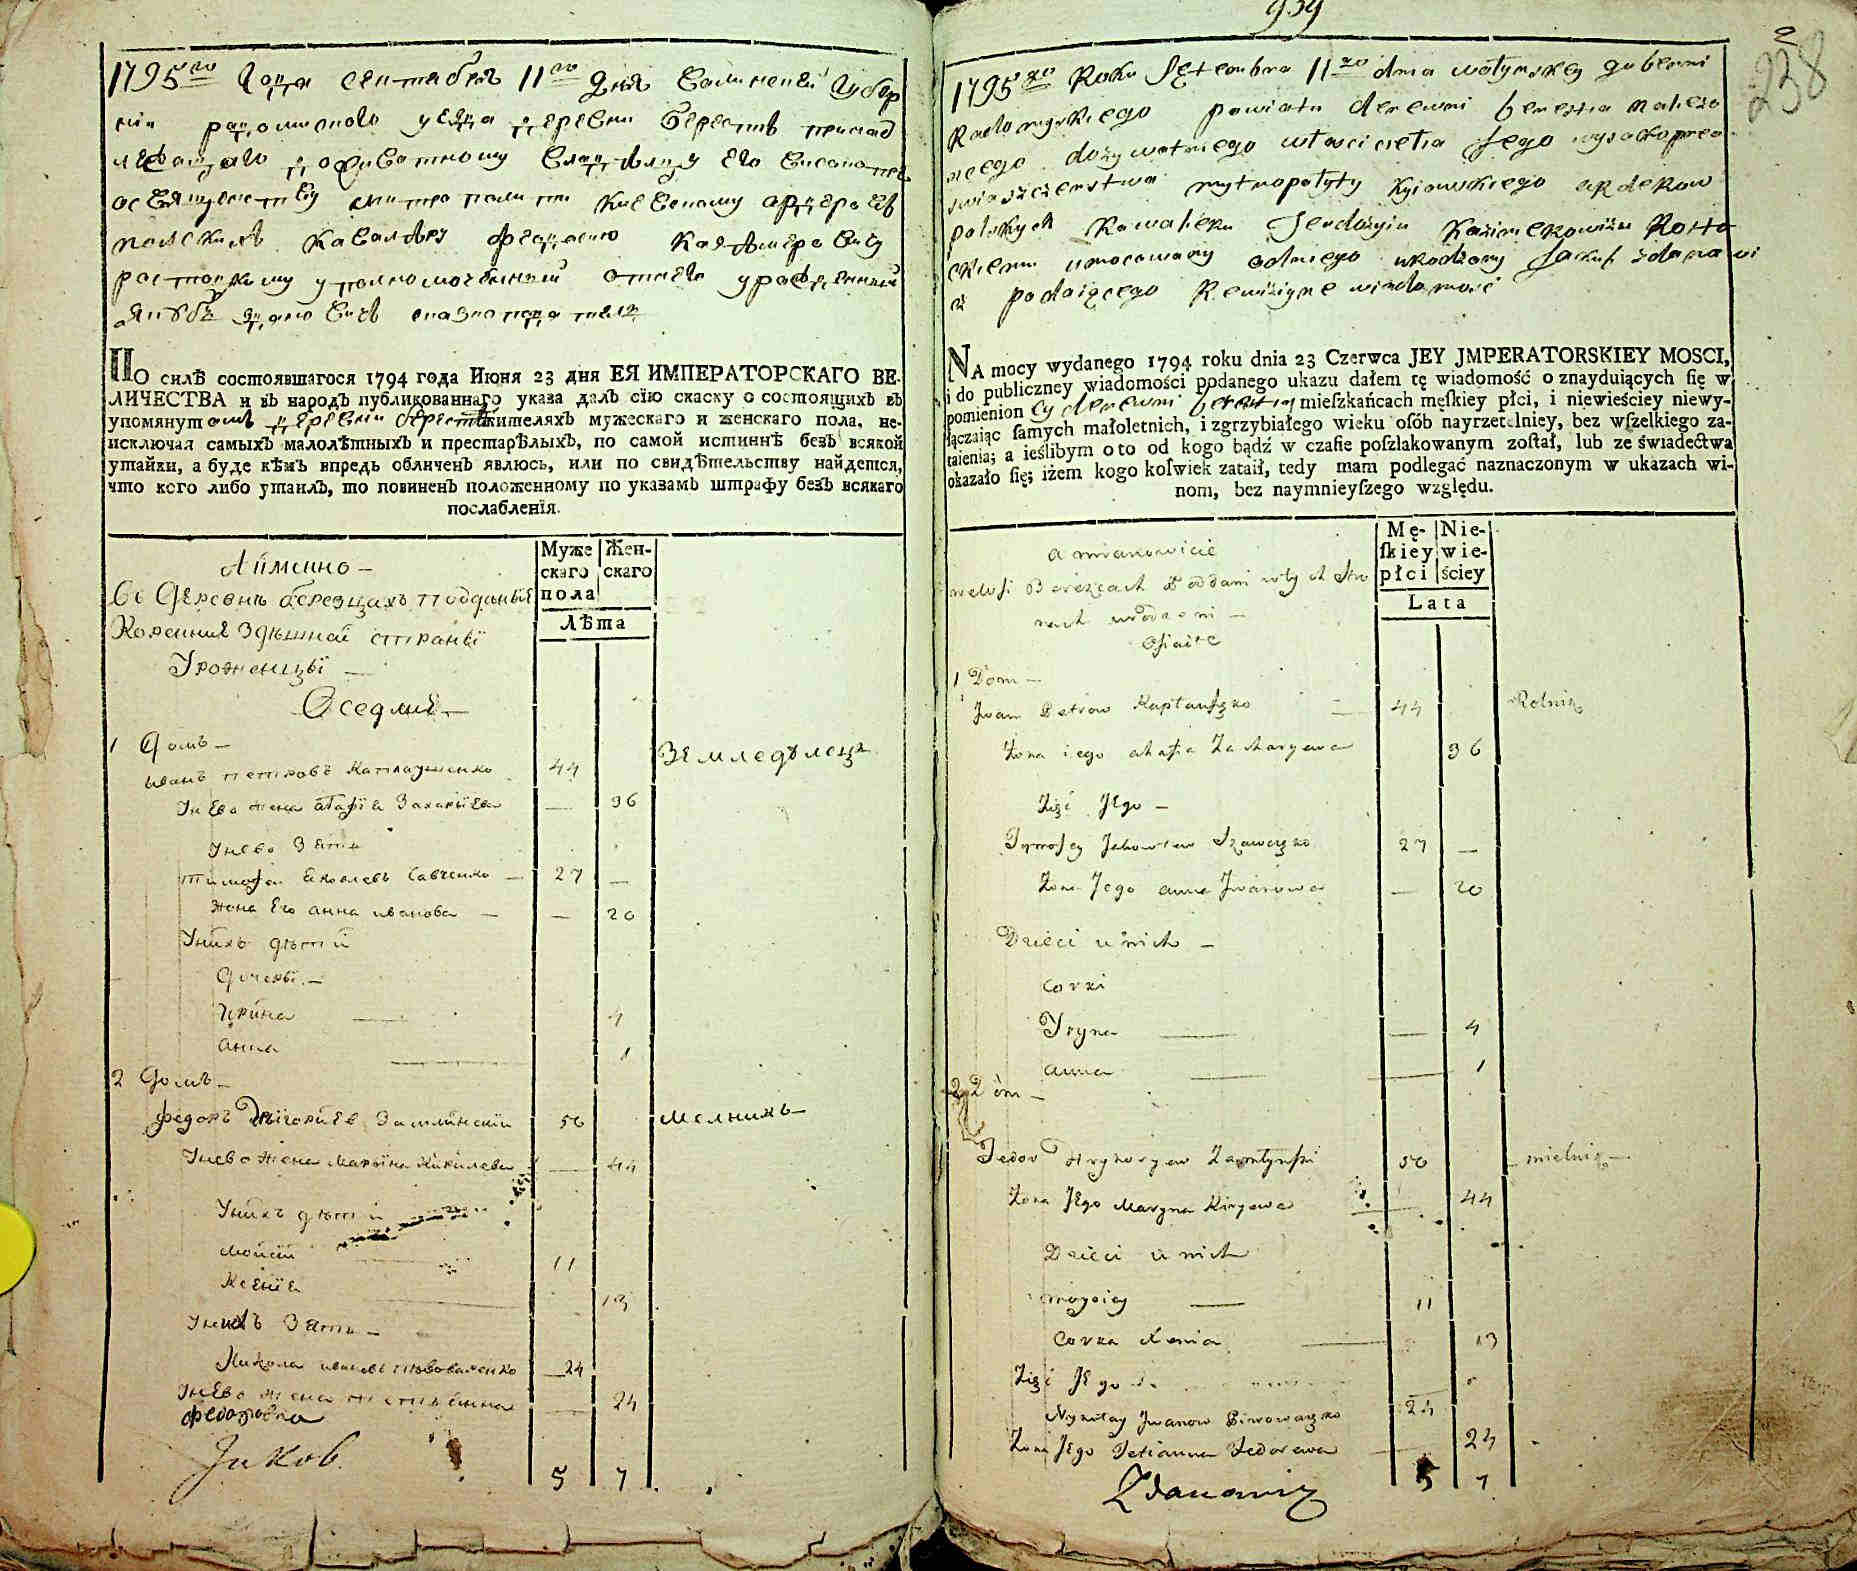 1795го Года сентября 11го дня Волинской Губер
нїи радомисского уезда деревни берестя принад
лежащаго доживотному владѣлцу Его Високопре
освященству митрополити киевскому ордеровъ
полскихъ кавалѣру феодосию Казѣмеровичу
ростоцкому уполномоченный отнего урожденный
Якубъ Здановичъ сказкоподатель
ПО силѣ состоявшагося 1794 года Июня 23 дня ЕЯ ИМПЕРАТОРСКАГО ВЕ-
ЛИЧЕСТВА и въ народъ публикованнаго указа далъ сїю скаску о состоящихъ въ
упомянутомъ деревни берестѣ жителяхъ мужескаго и женскаго пола, не-
исключая самыхъ малолѣтныхъ и престарѣлыхъ, по самой истиннѣ безъ всякой
утайки, а буде кѣмъ впредь обличенъ явлюсь, или по свидѣтельству найдется,
что кого либо утаилъ, то повиненъ положенному по указамъ штрафу безъ всякаго
послабленїя.
Муже
скаго
пола
Жен-
скаго
Лѣта
Аймянно –
Ве Деревнѣ березцахъ подданые
Коренние Здѣшной страны
Урожєнцы –
Оседлые –
1 Домъ –
иванъ петровъ Каплаушенко 44 Земледѣлецъ
Унево жена агафiя Захарїева — 36
Унево Зять
тимофей Яковлевъ Савченко — 27 —
Жена Его анна иванова — — 20
Унихъ дѣтїй
Дочеры –
Ирина — 4
анна — 1
2 Домъ –
федоръ Григорїев Замлинскїй 50 мелникъ –
Унево жена Марына Кирилева — 44
Унихъ дѣтїй
мойсїй 11
Ксенїя — 13
Унихъ Зять –
Никола ивановъ пивоваренко — 24
Унево жена тетиянна — 24
федорова
Jakob
5 7
939
2
238
1795go Roku Septembra 11go dnia wołynskey gubernii
Radomyskiego powiatu derewni beresta należo
nego dożywotniego własciciela Jego wysokopreo
swiaszczenstwa mytropolyty kyiowskiego orderow
polskych kawalieru Feodozyiu Kazimerowiczu Rosto
ckiemu umocowany odniego urodzony Jakub zdanowi
cz podaiącego Rewizyine wiadomość
NA mocy wydanego 1794 roku dnia 23 Czerwca JEY JMPERATORSKIEY MOSCI,
i do publiczney wiadomości podanego ukazu dałem tę wiadomość o znayduiących ſię w
pomienioney derewni beresta mieſzkańcach męſkiey płci, i niewieściey niewy-
łączaiąc ſamych małoletnich, i zgrzybiałego wieku oſób nayrzetelniey, bez wſzelkiego za-
taienia; a ieślibym oto od kogo bądź w czaſie poſzlakowanym zoſtał, lub ze świadectwa
okazało ſię; iżem kogo koſwiek zataił, tedy mam podlegać naznaczonym w ukazach wi-
nom, bez naymnieyſzego względu.
Mę-
ſkiey
płci
Nie-
wie-
ściey
Lata
a mianowicie
wewsi Bereżcach Poddani w tych Stro
nach urodzeni –
Osiadłe
1 Dom –
Jwan Petrow Kapłauszko — 44 Rolnik
Żona iego ahafia Zacharyewa 36
Zięć Jego –
Tymofey Jakowlew Szawczko 27 —
Żona Jego anna Jwanowa — 20
Dzieci u nich –
corki
Yryna — — 4
anna — — 1
2 Dom –
Fedor Hryhoryew Zamłynski 50 mielnik –
Żona Jego Maryna Kirylewa — 44
Dzieci u nich
moysiey — 11
Corka Xienia — 13
Zięć Jego
Nykołay Jwanow Piwowarzko 24
Żona Jego Tetianna Fedorowa — 24
Zdanowicz
5 7